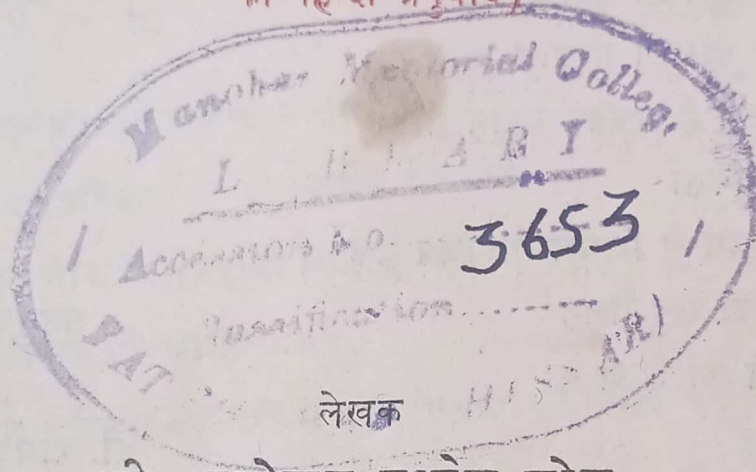 Manohar Memorial College
LIBRARY
Accession No. 3653
Classification........
HISSAR)
लेखक